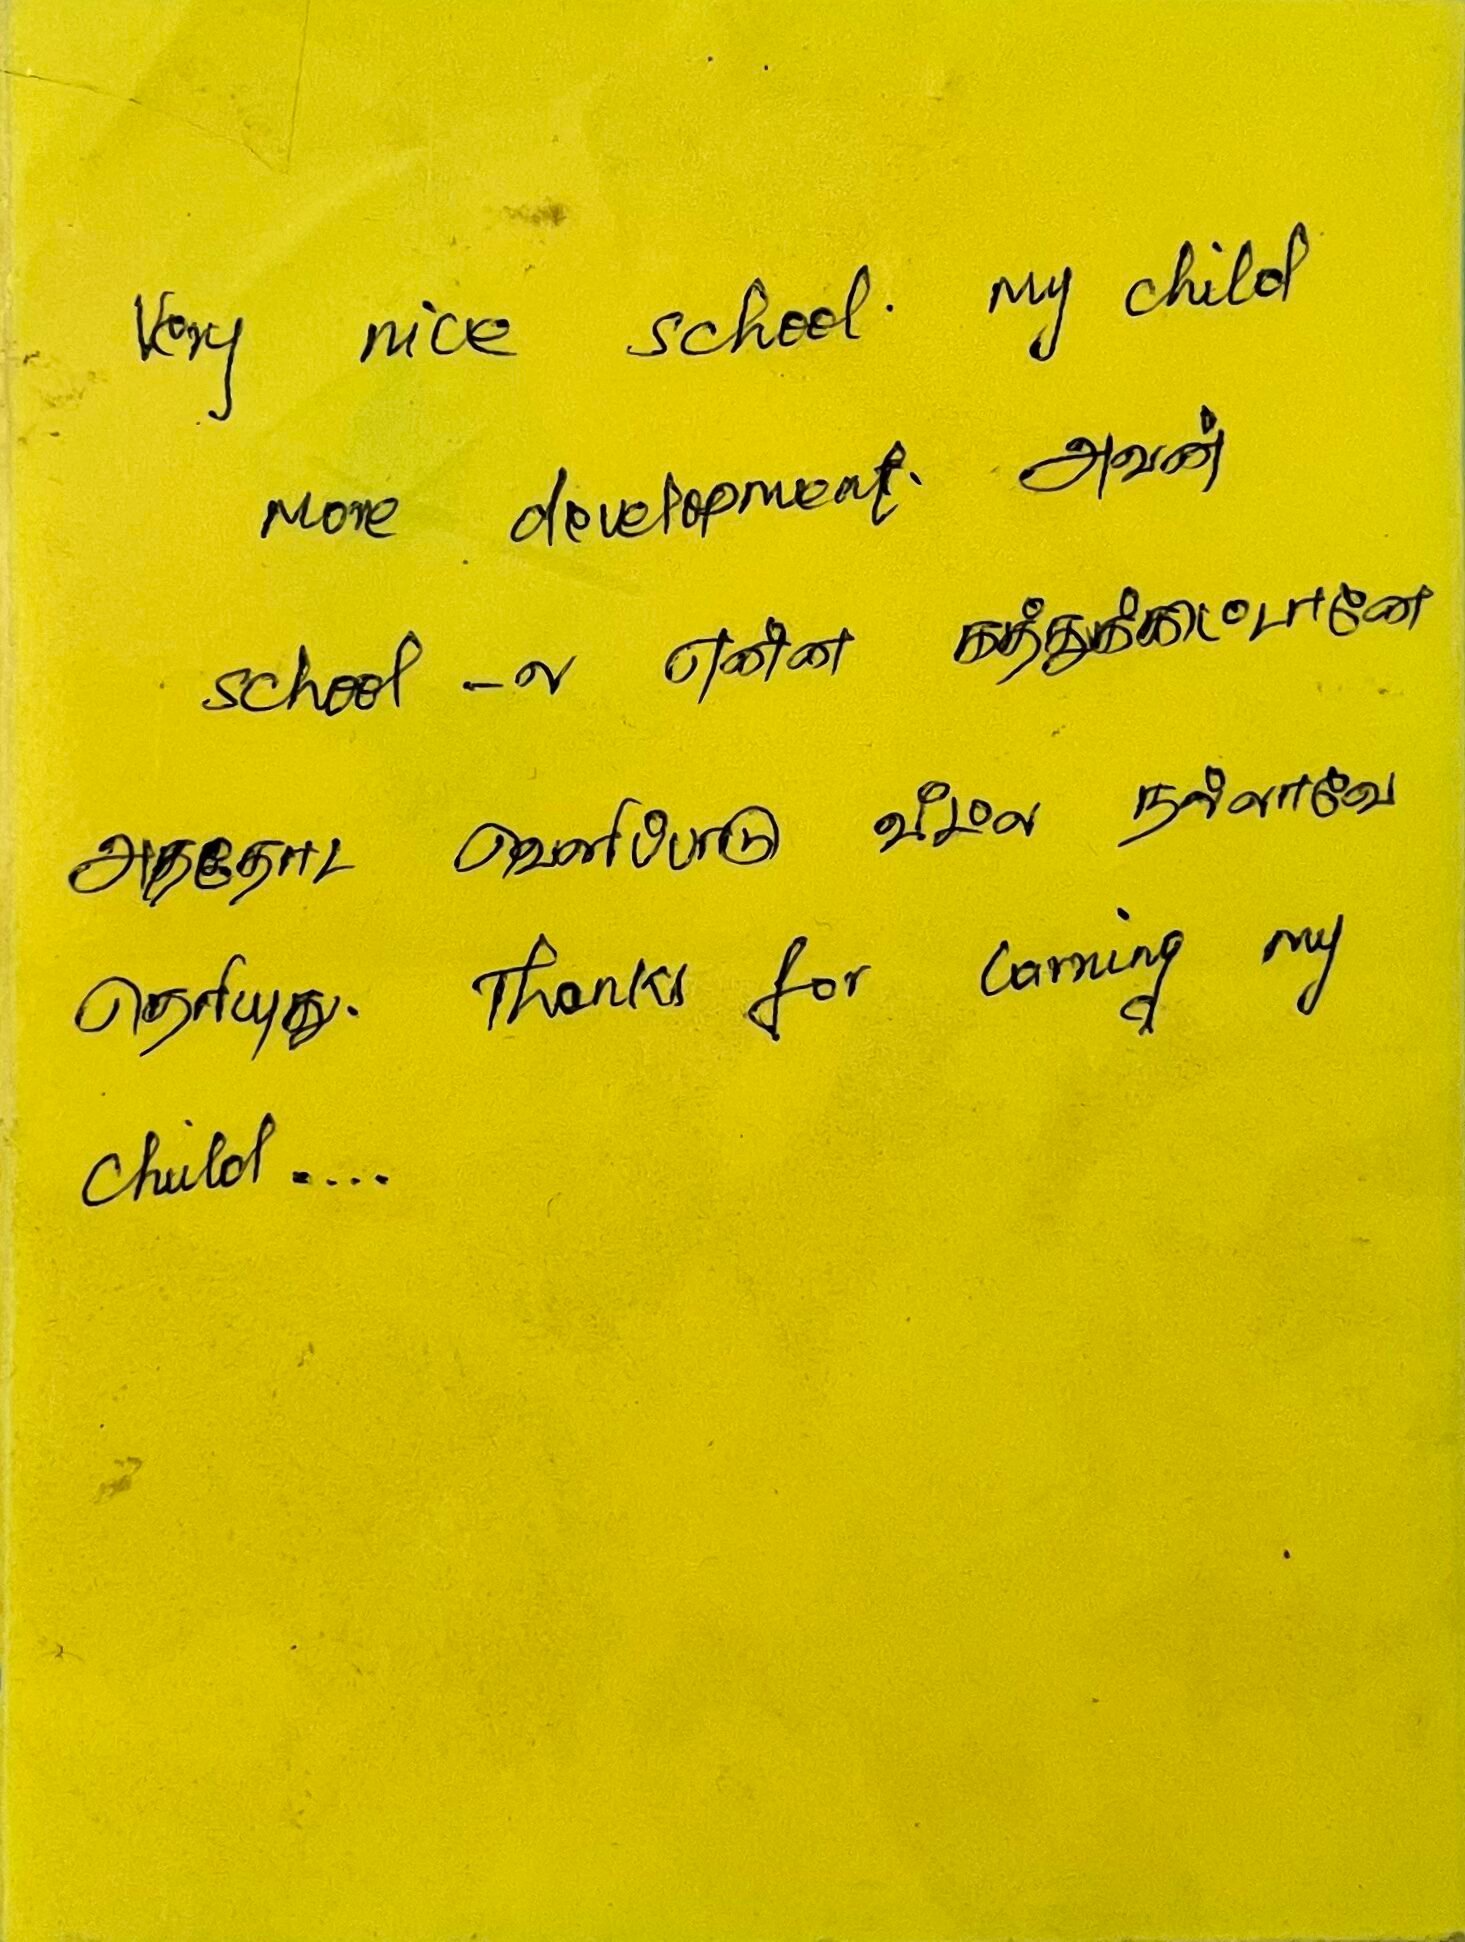 Very nice school. My child
more development. அவன்
school -ல என்ன கத்துக்கிட்டானோ
அததோட வெளிப்பாடு வீட்ல நல்லாவே
தெரியுது. Thanks for carning my
child....